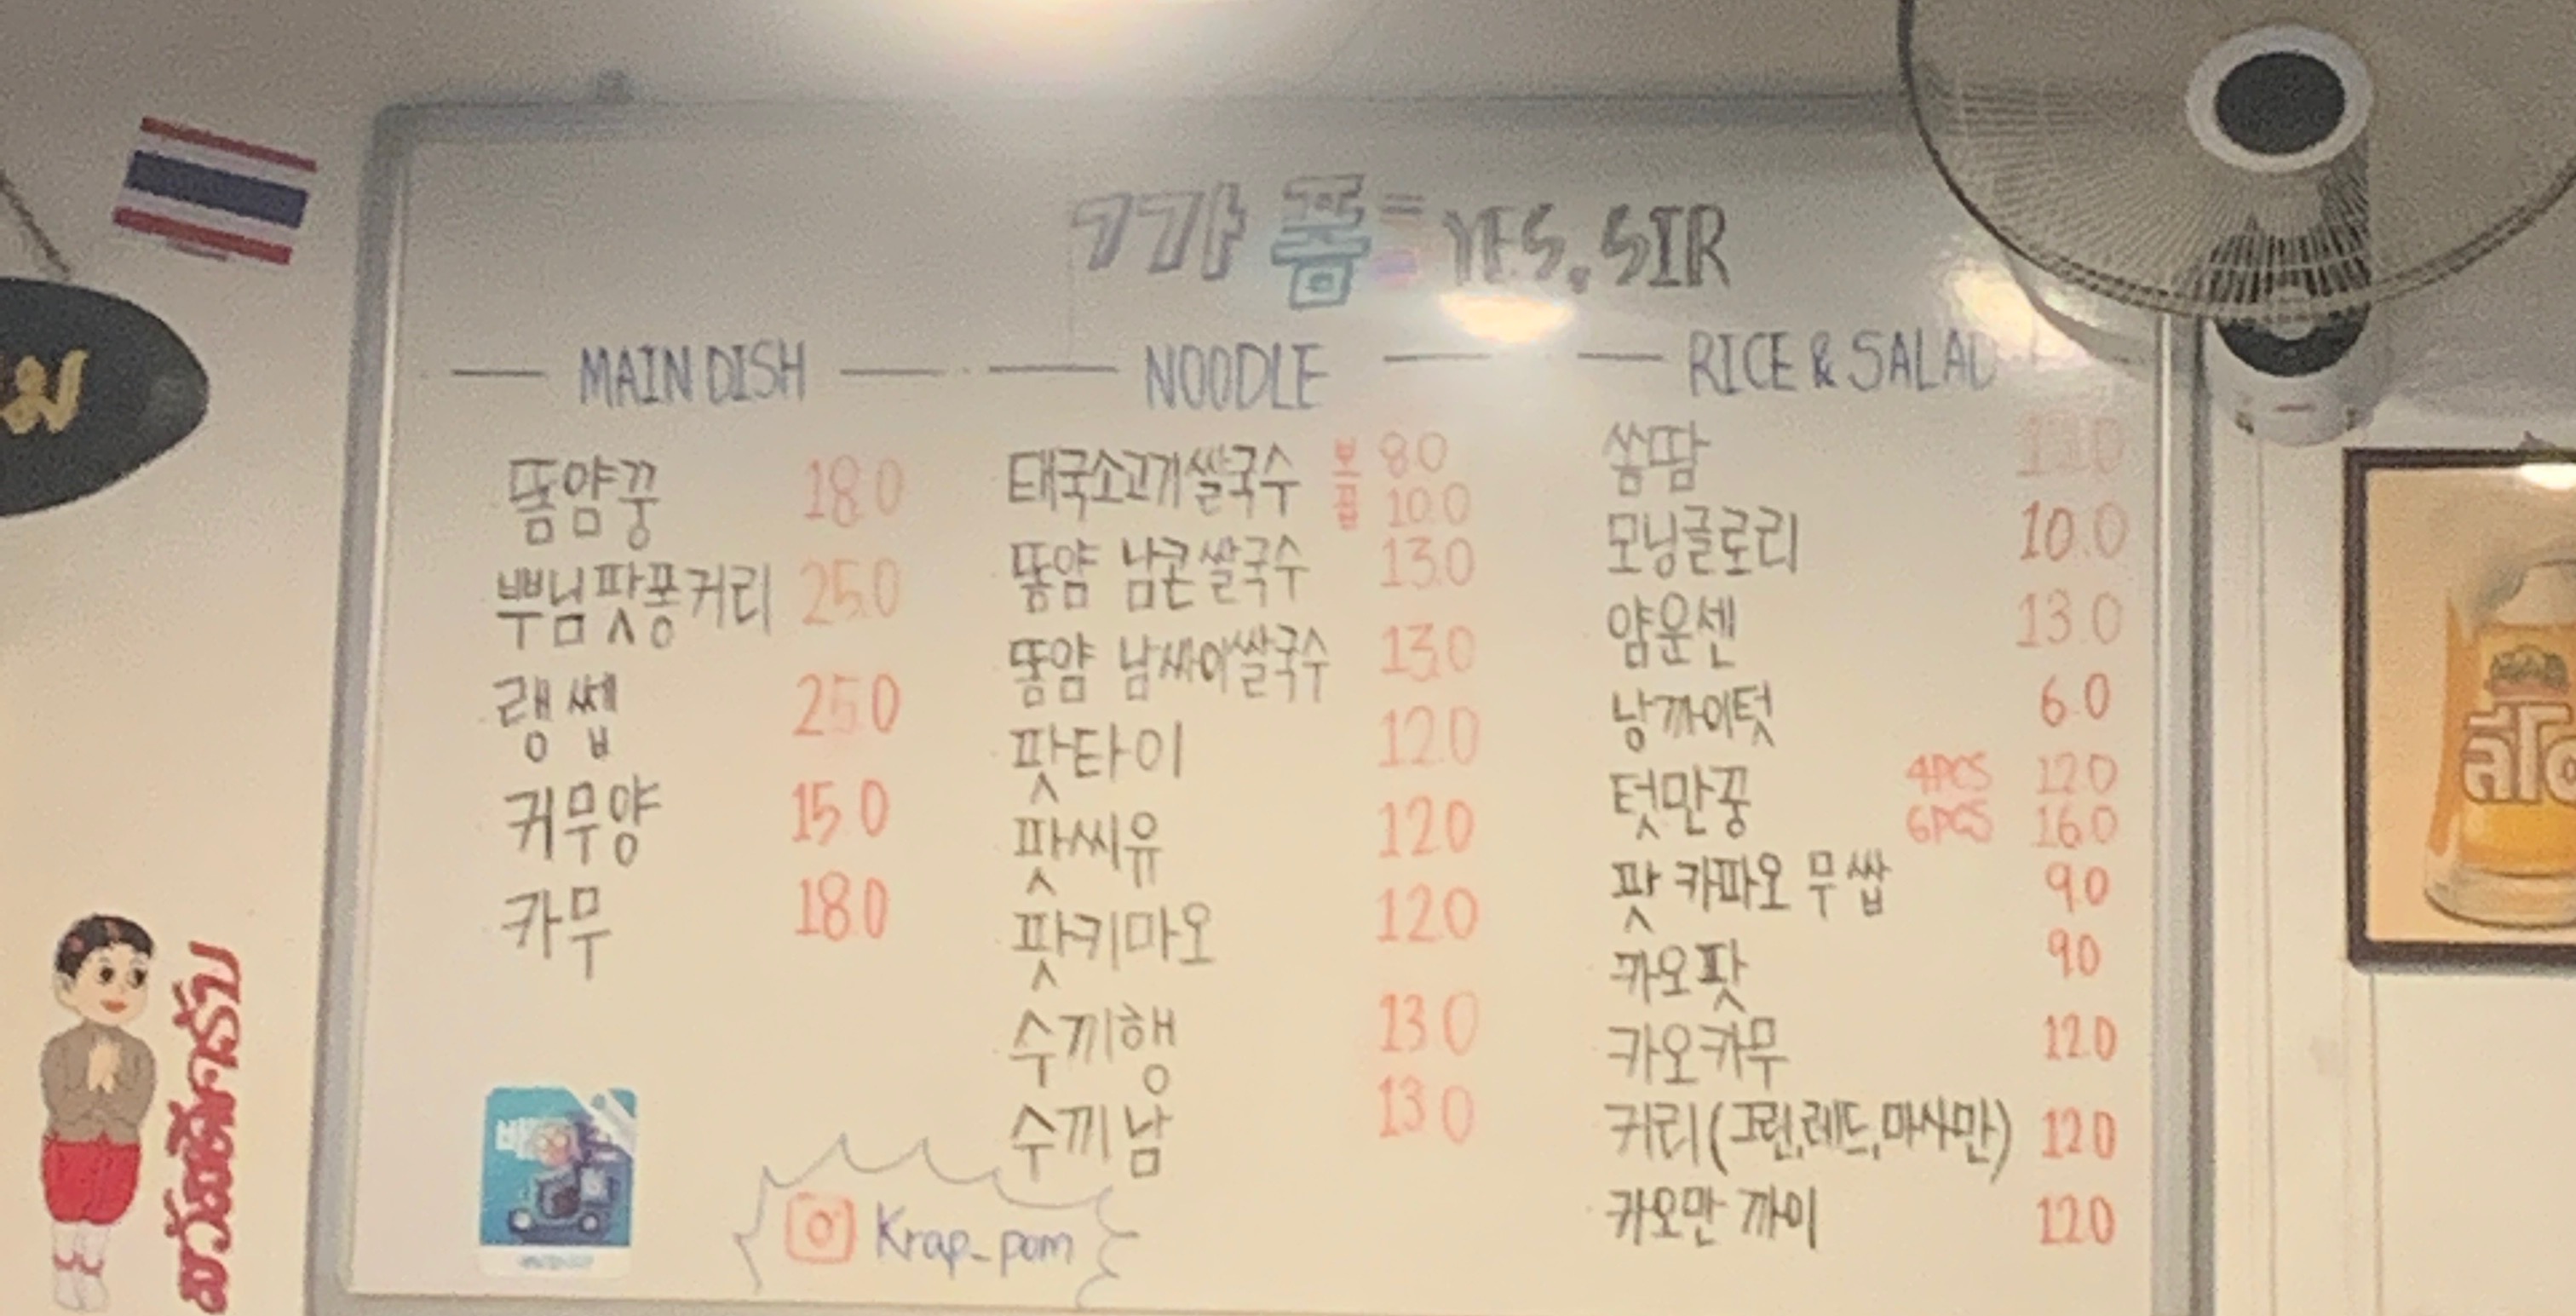 까폼=YES.SIR
MAIN DISH
똠얌꿍 18.0
뿌님팟퐁커리 25.0
랭쎕 25.0
커무양 15.0
카무 18.0
Krap_pom
NOODLE
태국소고기쌀국수 보 8.0
곱 10.0
똠얌 남콘쌀국수 13.0
똠얌 남싸이쌀국수 13.0
팟타이 12.0
팟씨유 12.0
팟키마오 12.0
수끼행 13.0
수끼남 13.0
RICE & SALAD
쏨땀
모닝글로리 10.0
얌운센 13.0
낭까이텃 6.0
텃만꿍 4PCS 12.0
6PCS 16.0
팟 카파오 무쌉 9.0
카오팟 9.0
카오카무 12.0
커리(그린,레드,마사만) 12.0
카오만 까이 12.0
สวัสดีครับ